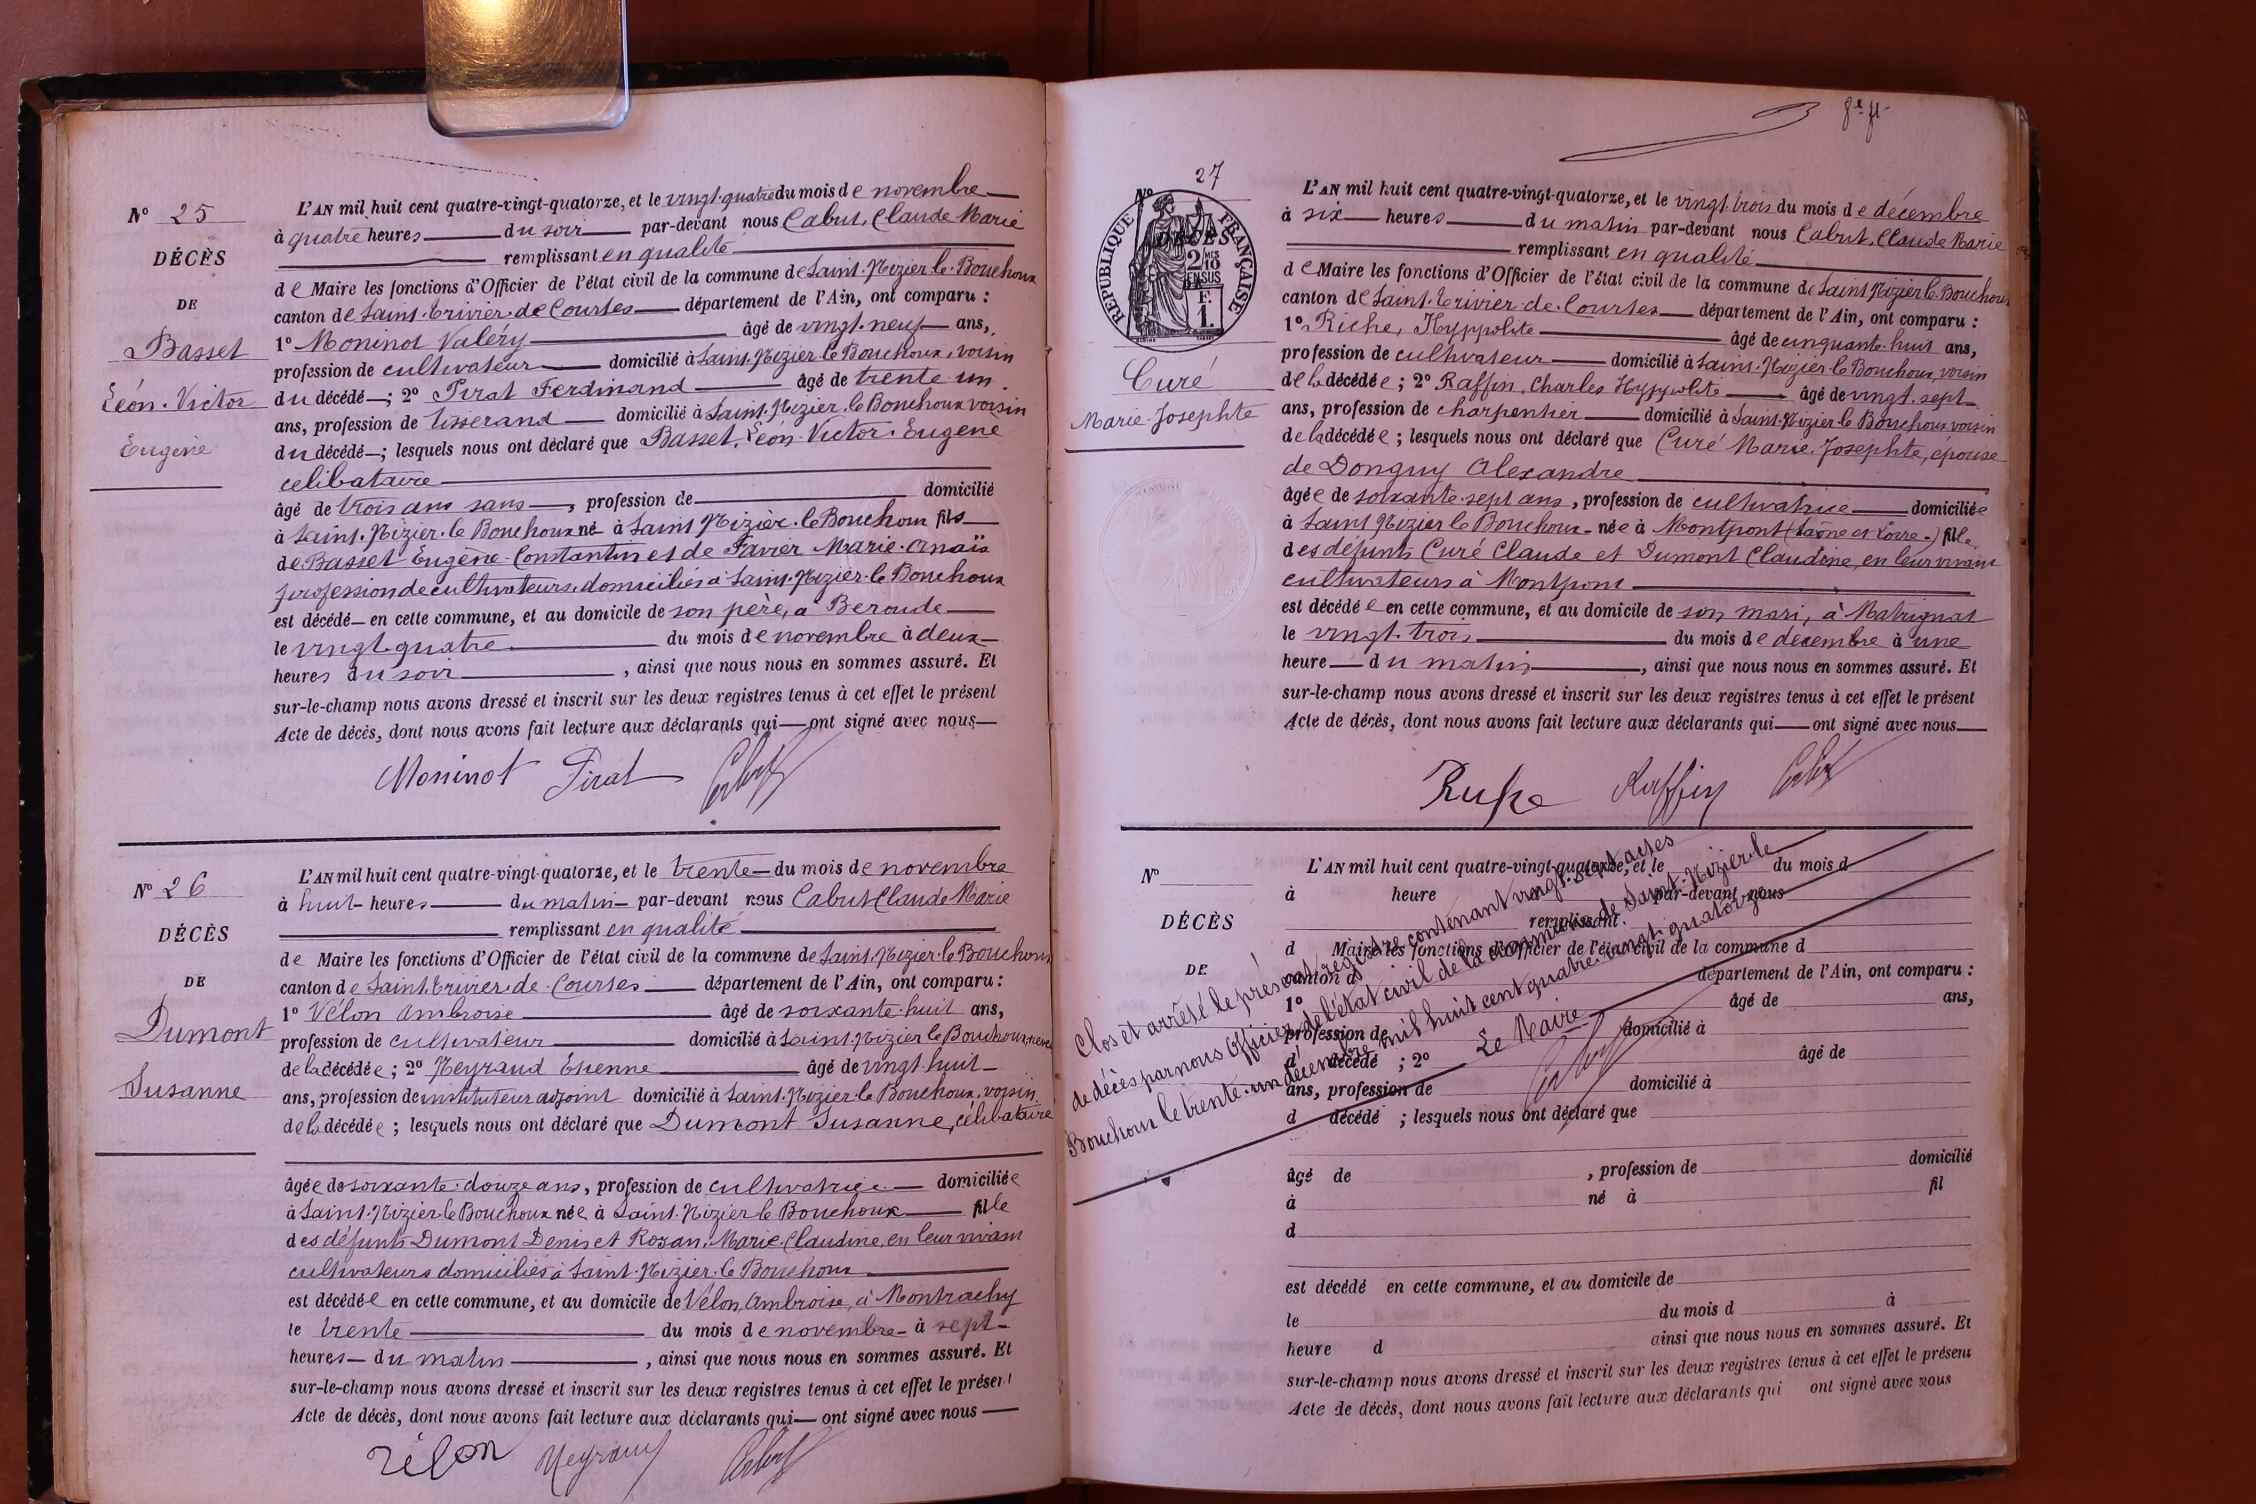 N° 25
DÉCÈS
DE
Basset
Léon-Victor
Eugène
L'AN mil huit cent quatre-vingt-quatorze, et le vingt-quatre du mois de novembre
à quatre heures du soir par-devant nous Cabut, Claude Marie
remplissant en qualité
de Maire les fonctions d'Officier de l'état civil de la commune de Saint-Nizier-le-Bouchoux
canton de Saint-Trivier-de-Courtes département de l'Ain, ont comparu :
1° Moninot Valéry âgé de vingt-neuf ans,
profession de cultivateur domicilié à Saint-Nizier le Bouchoux, voisin
du décédé ; 2° Pirat Ferdinand âgé de trente-un
ans, profession de tisserand domicilié à Saint-Nizier-le Bouchoux voisin
du décédé ; lesquels nous ont déclaré que Basset, Léon-Victor-Eugène
célibataire
âgé de trois ans sans , profession de domicilié
à Saint-Nizier-le Bouchoux né à Saint Nizier-le Bouchoux fils
de Basset Eugène-Constantin et de Favier Marie-Anaïs
profession de cultivateurs domiciliés à Saint-Nizier-le Bouchoux
est décédé en cette commune, et au domicile de son père, à Beroude
le vingt-quatre du mois de novembre à deux
heures du soir , ainsi que nous nous en sommes assuré. Et
sur-le-champ nous avons dressé et inscrit sur les deux registres tenus à cet effet le présent
Acte de décès, dont nous avons fait lecture aux déclarants qui ont signé avec nous
Moninot Pirat Cabut
N° 26
DÉCÈS
DE
Dumont
Susanne
L'AN mil huit cent quatre-vingt-quatorze, et le trente du mois de novembre
à huit heures du matin par-devant nous Cabut Claude Marie
remplissant en qualité
de Maire les fonctions d'Officier de l'état civil de la commune de Saint-Nizier-le-Bouchoux
canton de Saint-Trivier-de-Courtes département de l'Ain, ont comparu :
1° Vélon Ambroise âgé de soixante-huit ans,
profession de cultivateur domicilié à Saint-Nizier le Bouchoux, neveu
de la décédée ; 2° Neyraud Etienne âgé de vingt huit
ans, profession de instituteur adjoint domicilié à Saint-Nizier-le Bouchoux, voisin
de la décédée ; lesquels nous ont déclaré que Dumont Susanne, célibataire
âgée de soixante-douze ans, profession de cultivatrice domiciliée
à Saint-Nizier-le Bouchoux née à Saint-Nizier le Bouchoux fille
des défunts Dumont Denis et Rozan, Marie-Claudine, en leur vivant
cultivateurs domiciliés à Saint-Nizier-le Bouchoux
est décédée en cette commune, et au domicile de Vélon Ambroise, à Montrachy
le trente du mois de novembre à sept
heures du matin , ainsi que nous nous en sommes assuré. Et
sur-le-champ nous avons dressé et inscrit sur les deux registres tenus à cet effet le présent
Acte de décès, dont nous avons fait lecture aux déclarants qui ont signé avec nous
Vélon Neyraud Cabut
N° 27
DÉCÈS
RÉPUBLIQUE FRANÇAISE
2/10 EN SUS
F.
1.
Curé
Marie-Josephte
L'AN mil huit cent quatre-vingt-quatorze, et le vingt-trois du mois de décembre
à six heures du matin par-devant nous Cabut, Claude Marie
remplissant en qualité
de Maire les fonctions d'Officier de l'état civil de la commune de Saint Nizier le Bouchoux
canton de Saint-Trivier-de-Courtes département de l'Ain, ont comparu :
1° Riche, Hyppolite âgé de cinquante-huit ans,
profession de cultivateur domicilié à Saint-Nizier-le Bouchoux, voisin
de la décédée ; 2° Raffin, Charles Hyppolite âgé de vingt-sept
ans, profession de charpentier domicilié à Saint-Nizier-le Bouchoux voisin
de la décédée ; lesquels nous ont déclaré que Curé Marie-Josephte, épouse
de Donguy Alexandre
âgée de soixante-sept ans, profession de cultivatrice domiciliée
à Saint Nizier le Bouchoux née à Montpont (Saône et Loire) fille
des défunts Curé Claude et Dumont Claudine, en leur vivant
cultivateurs à Montpont
est décédée en cette commune, et au domicile de son mari, à Matrignat
le vingt-trois du mois de décembre à une
heure du matin , ainsi que nous nous en sommes assuré. Et
sur-le-champ nous avons dressé et inscrit sur les deux registres tenus à cet effet le présent
Acte de décès, dont nous avons fait lecture aux déclarants qui ont signé avec nous
Riche Raffin Cabut
N°
DÉCÈS
DE
L'AN mil huit cent quatre-vingt-quatorze, et le du mois d
à heure par-devant nous
remplissant
d Maire les fonctions d'Officier de l'état civil de la commune d
canton d département de l'Ain, ont comparu :
1° âgé de ans,
profession de domicilié à
d décédé ; 2° âgé de
ans, profession de domicilié à
d décédé ; lesquels nous ont déclaré que
âgé de , profession de domicilié
à né à fil
d
est décédé en cette commune, et au domicile de
le du mois d à
heure d ainsi que nous nous en sommes assuré. Et
sur-le-champ nous avons dressé et inscrit sur les deux registres tenus à cet effet le présent
Acte de décès, dont nous avons fait lecture aux déclarants qui ont signé avec nous
Clos et arrêté le présent registre contenant vingt-sept actes
de décès par nous Officier de l'état civil de la commune de Saint-Nizier-le
Bouchoux le trente-un décembre mil huit cent quatre-vingt-quatorze
Le Maire
Cabut